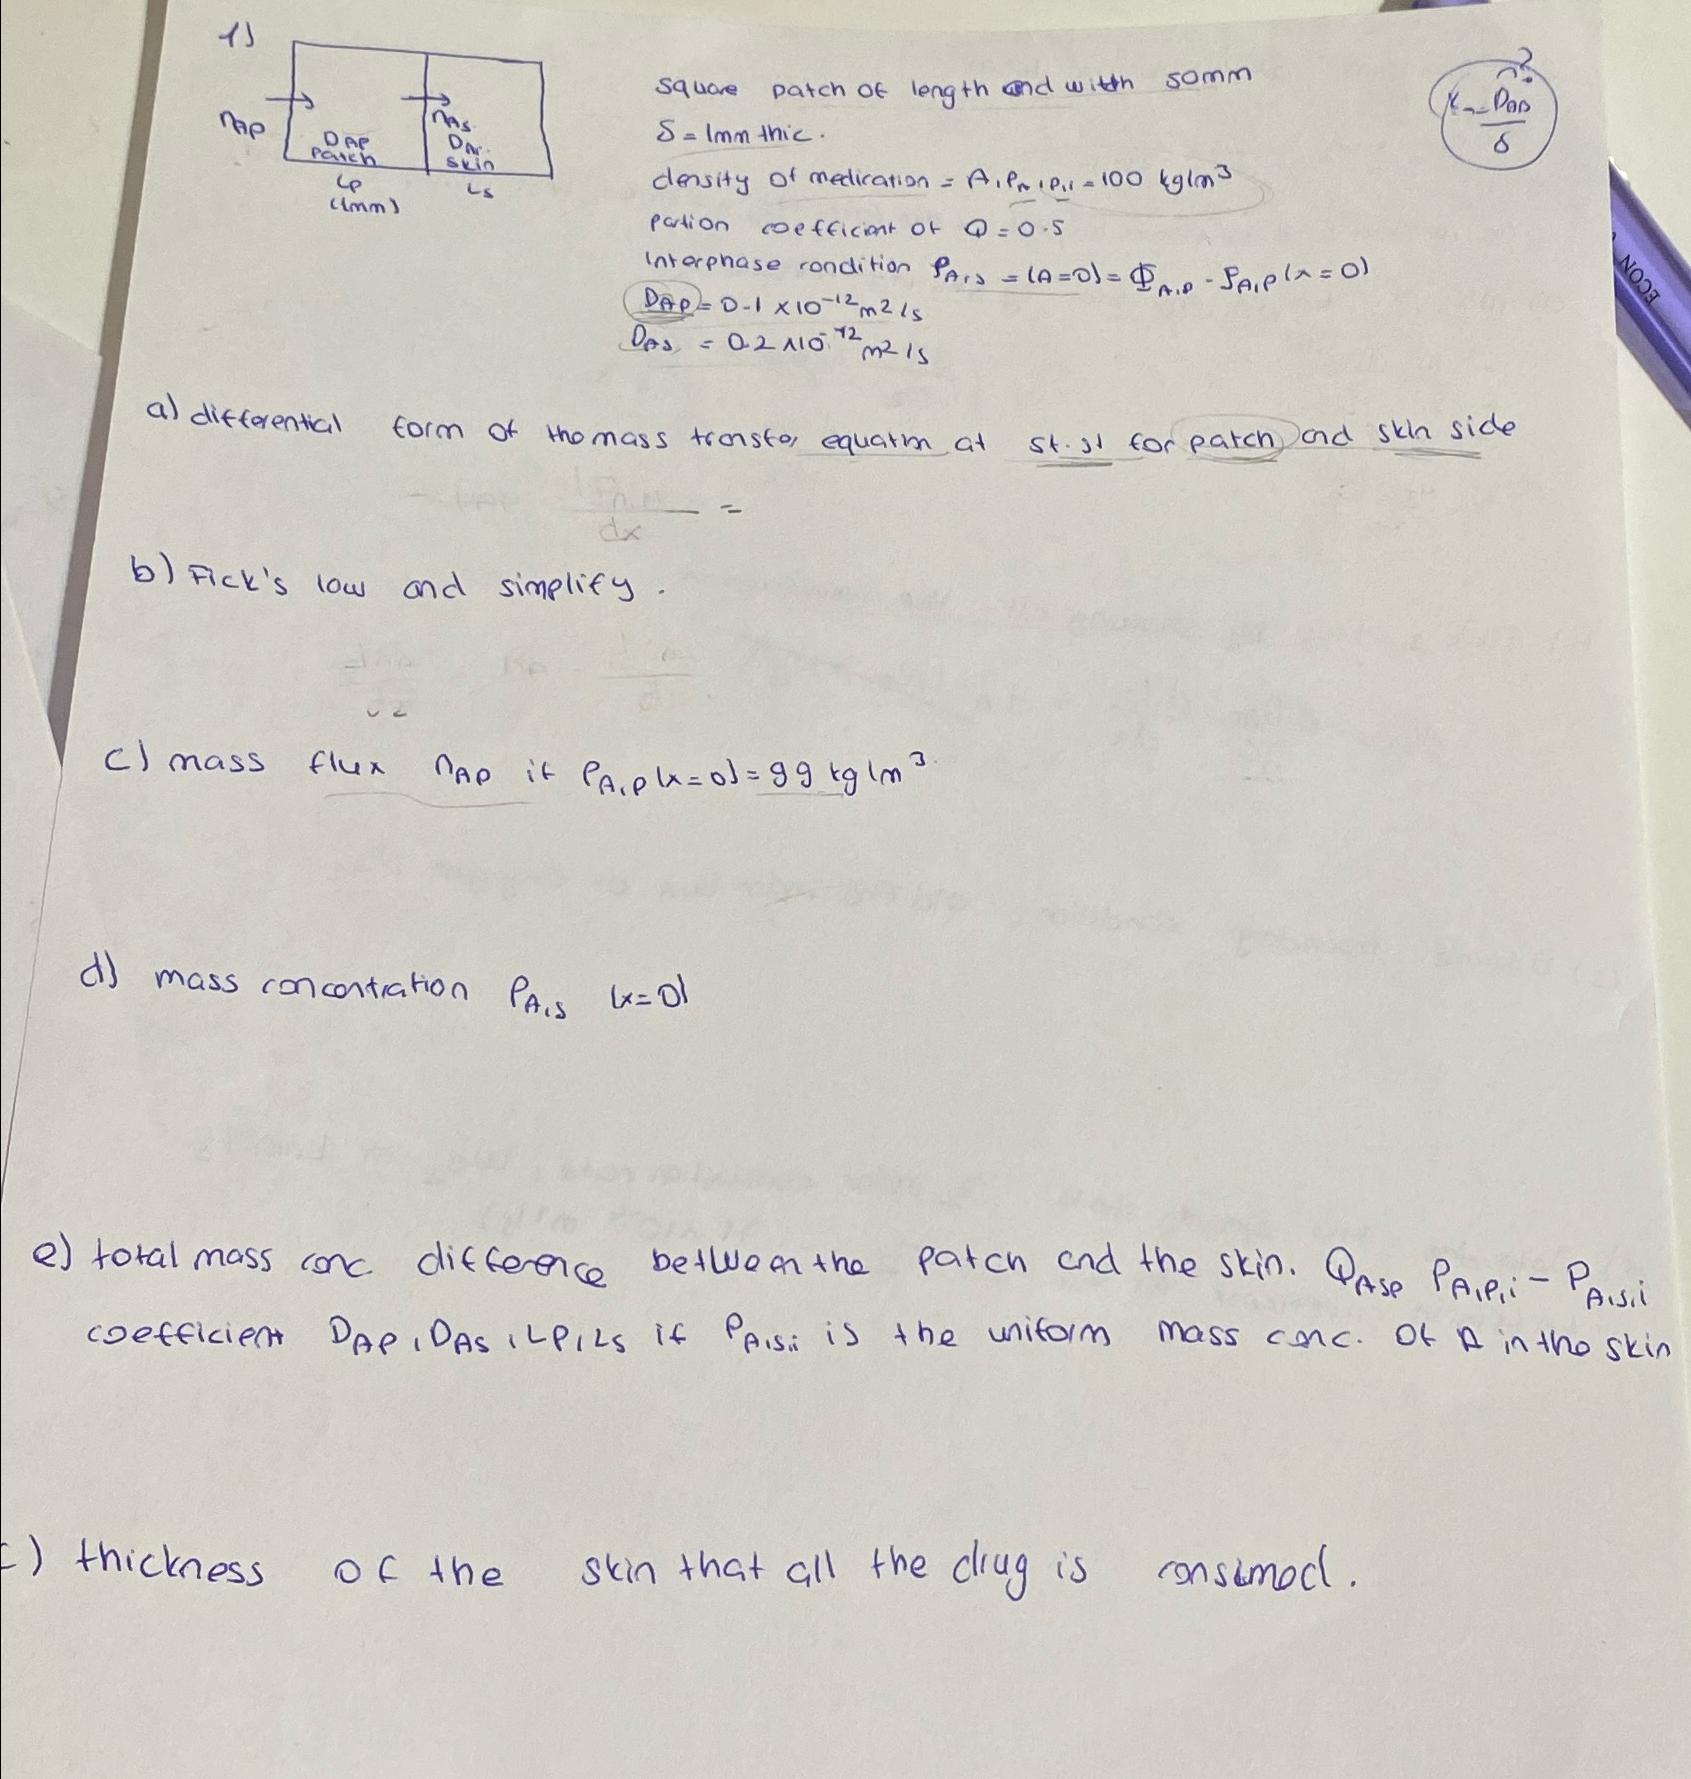 1)
nAP
DAP
patch
LP
(1mm)
nAs
DAs
skin
Ls
square patch of length and witth 50mm
δ = 1mm thic.
density of medication = A, PA,P,i = 100 kg/m³
partion coefficient of Q = 0.5
Interphase condition PA,s = (A=0) = ΦA,P - PA,P (x=0)
DAP = 0.1 x 10⁻¹² m²/s
DAs = 0.2 x 10⁻¹² m²/s
n?
K = DAB
δ
ECON
a) differential form of the mass transfer equatin at st.st for patch and skin side
dx =
b) Fick's low and simplify.
c) mass flux nAP if PA,P (x=0) = 99 kg/m³.
d) mass concontration PA,s (x=0)
e) total mass conc difference between the patch and the skin. QAsp PA,P,i - PA,s,i
coefficient DAP, DAs, LP, Ls if PA,s,i is the uniform mass conc. of A in the skin
) thickness of the skin that all the drug is consumed.